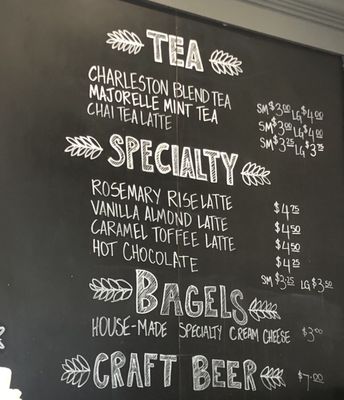 TEA
CHARLESTON BLEND TEA SM $3.00 LG $4.00
MAJORELLE MINT TEA SM $3.00 LG $4.00
CHAI TEA LATTE SM $3.25 LG $3.75
SPECIALTY
ROSEMARY RISE LATTE $4.75
VANILLA ALMOND LATTE $4.50
CARAMEL TOFFEE LATTE $4.50
HOT CHOCOLATE $4.25
SM $3.25 LG $3.50
BAGELS
HOUSE-MADE SPECIALTY CREAM CHEESE $3.00
CRAFT BEER $7.00